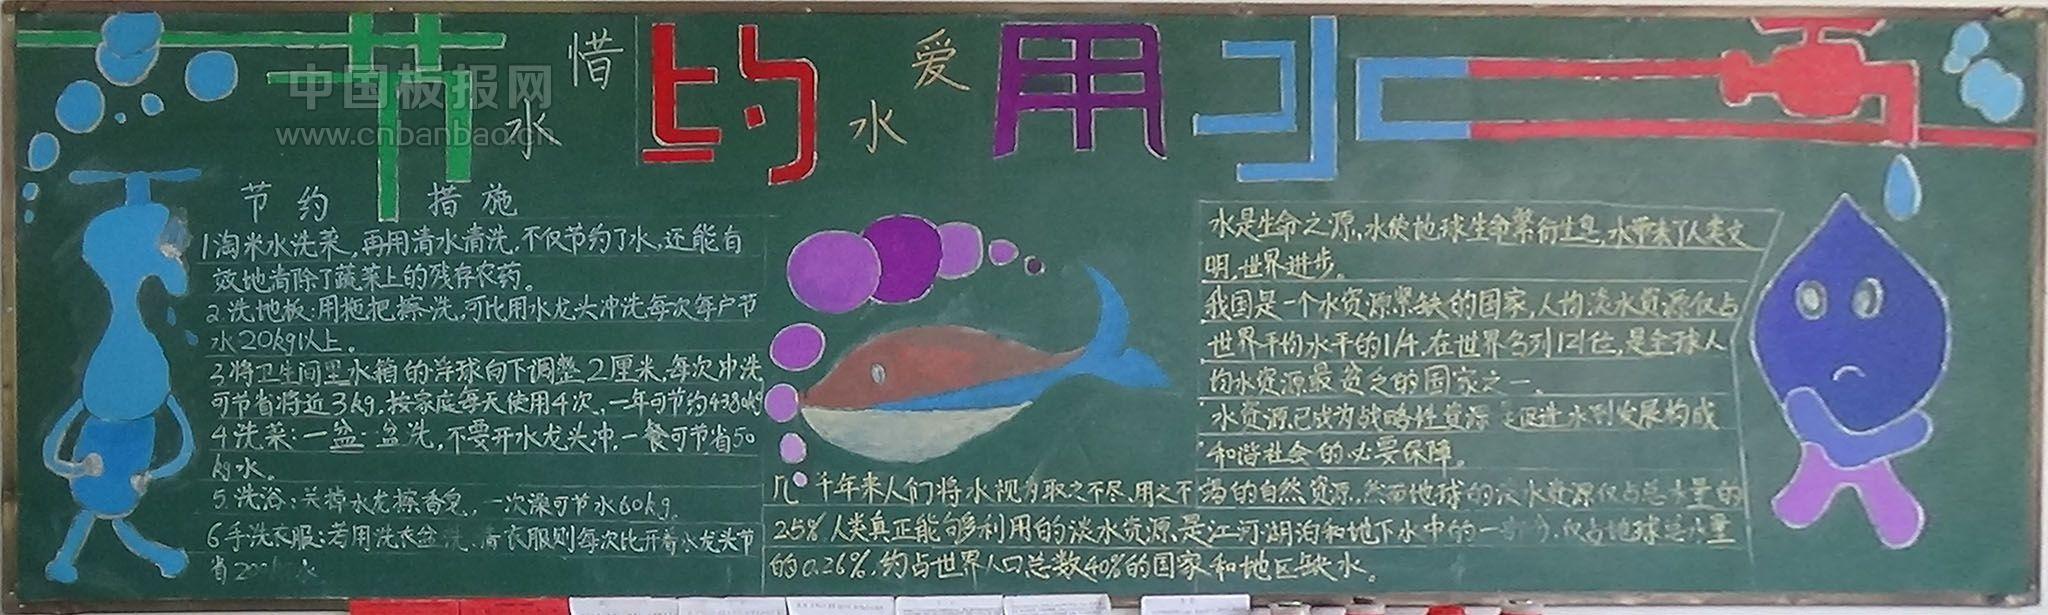 节约用水
惜水
爱水
中国板报网
www.cnbanbao.cn
节约 措施
1淘米水洗菜,再用清水清洗,不仅节约了水,还能有
效地清除了蔬菜上的残存农药。
2洗地板:用拖把擦洗,可比用水龙头冲洗每次每户节
水20kg以上。
3将卫生间里水箱的浮球向下调整2厘米,每次冲洗
可节省将近3kg,按家庭每天使用4次,一年可节约4380kg
4洗菜:一盆一盆洗,不要开水龙头冲,一餐可节省50
kg水。
5.洗浴:关掉水龙擦香皂,一次澡可节水60kg。
6手洗衣服:若用洗衣盆洗、清衣服则每次比开着水龙头节
省水
水是生命之源,水使地球生命繁衍生息,水带来了人类文
明,世界进步。
我国是一个水资源紧缺的国家,人均淡水资源仅占
世界平均水平的1/4,在世界名列121位,是全球人
均水资源最贫乏的国家之一。
水资源已成为战略性资源 促进水利发展构成
和谐社会的必要保障。
几千年来人们将水视为取之不尽,用之不竭的自然资源,然而地球的淡水资源仅占总水量的
25%人类真正能够利用的淡水资源是江河湖泊和地下水中的一部分,仅占地球总水量
的0.26%,约占世界人口总数40%的国家和地区缺水。